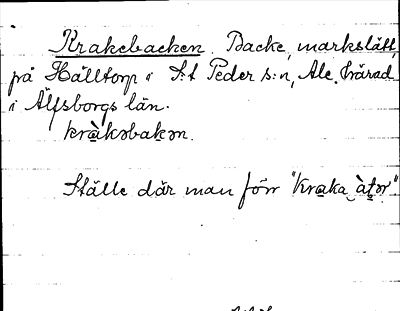 Krakebacken. Backe, markslätt,
på Hälltorp i S:t Peder s:n, Ale härad
i Älfsborgs län.
kràkəbakən.
Ställe där man förr "kraka àtər".